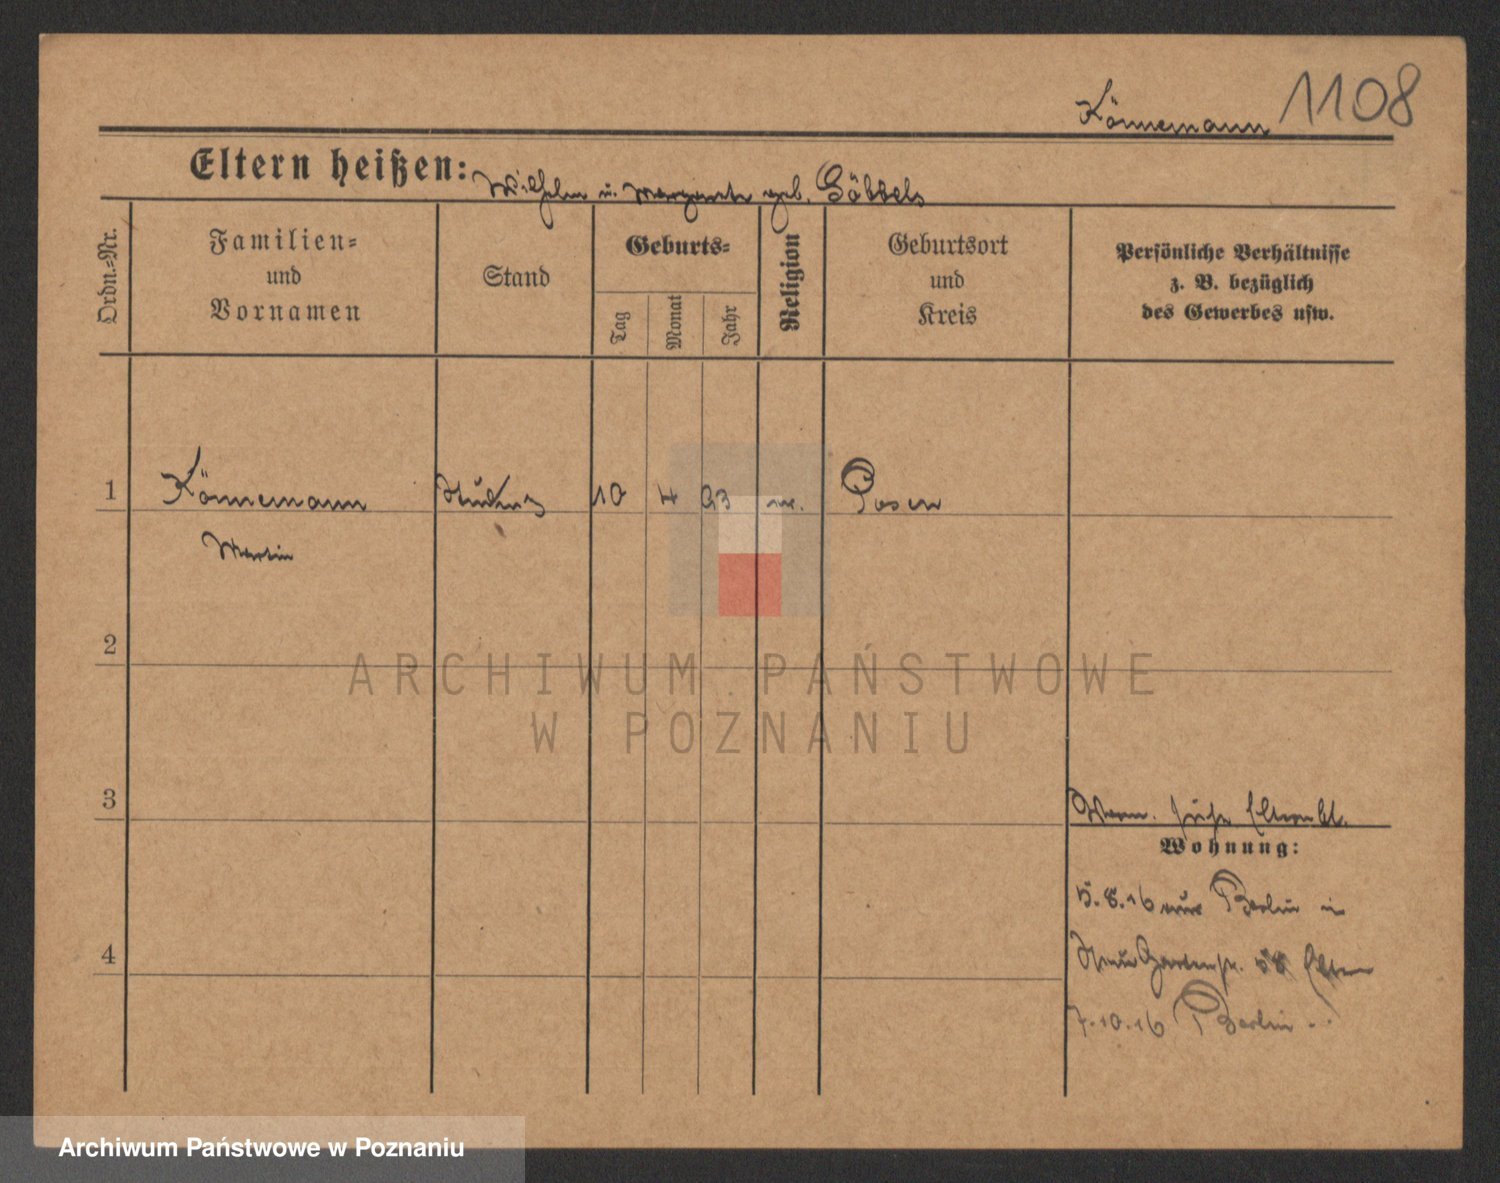 Könnemann 1108
Eltern heißen: Wilhelm u. Margarete geb. Göbbels
Ordn.-Nr.
Familien-
und
Vornamen
Stand
Geburts-
Tag
Monat
Jahr
Religion
Geburtsort
und
Kreis
Persönliche Verhältnisse
z. B. bezüglich
des Gewerbes usw.
1 Könnemann Student 10 4 93 Posen
Martin
2
ARCHIWUM PAŃSTWOWE
W POZNANIU
3
siehe Elternbl.
Wohnung:
5.8.16 von Berlin in
4
Gartenstr. Eltern
7.10.16 Berlin
Archiwum Państwowe w Poznaniu